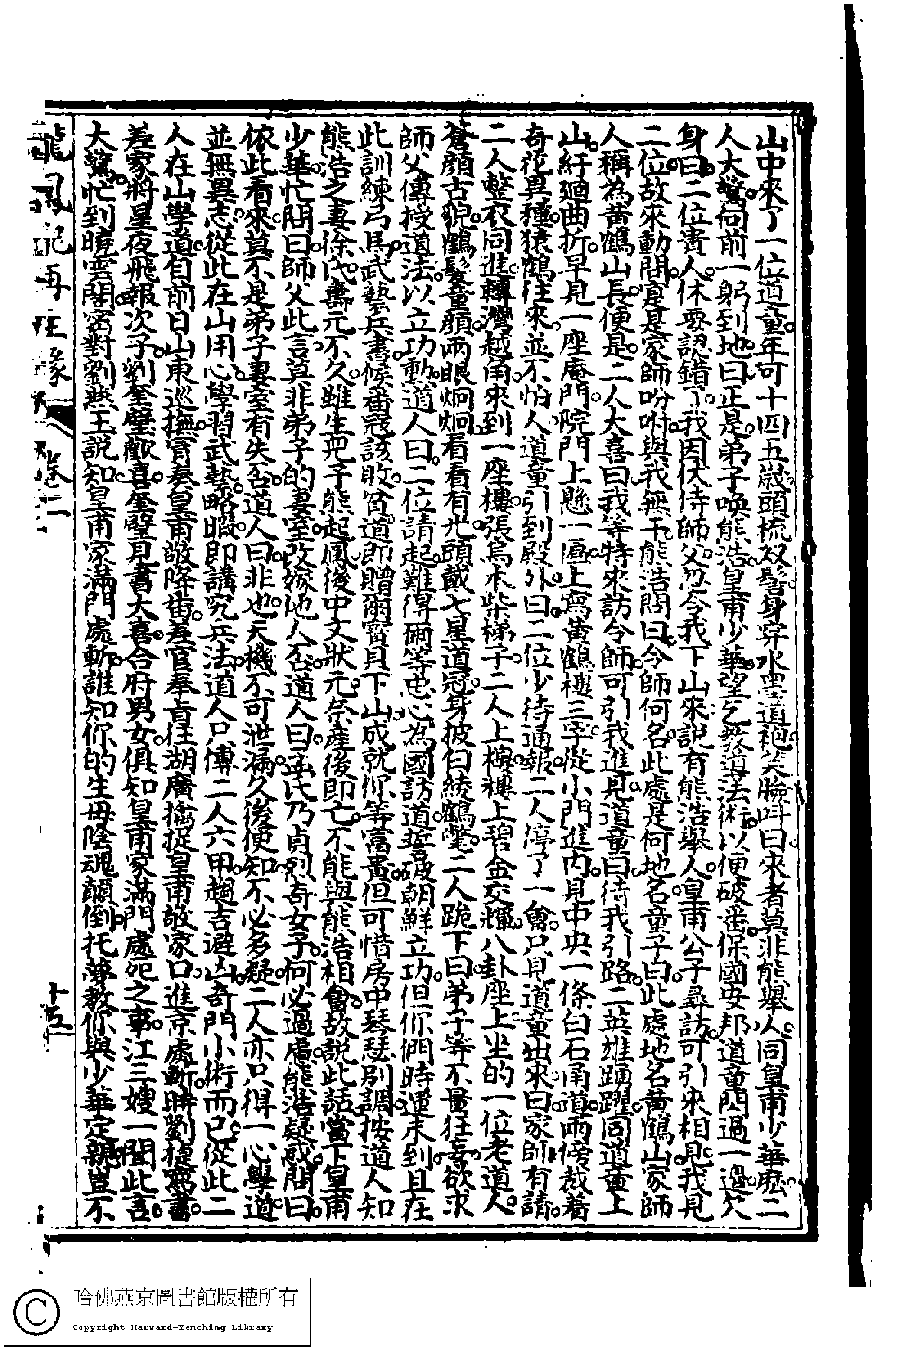 山中來了一位道童年可十四五歲頭梳双髻身穿水墨道袍笑臉呼曰來者莫非熊舉人同皇甫少華麽二
人大驚向前一躬到地曰正是弟子喚熊浩皇甫少華望乞教導法術以便破番保國安邦道童閃過一邊欠
身曰二位貴人休要認錯了我因伏侍師父忽令我下山來說有熊浩舉人皇甫公子尋訪可引來相見我見
二位故來動問實是家師吩咐與我無干熊浩問曰令師何名此處是何地名童子曰此處地名黃鶴山家師
人稱為黃鶴山長便是二人大喜曰我等特來訪令師可引我進見道童曰待我引路二英雄踴躍同道童上
山紆廻曲折早見一座庵門院門上懸一匾上寫黃鶴樓三字從小門進內見中央一條白石甬道兩傍栽着
奇花異種猿鶴往來並不怕人道童引到殿外曰二位少待通報二人停了一會只見道童出來曰家師有請
二人整衣同進轉灣越角來到一座樓張烏木柴梯子二人上樓樓上碧金交輝八卦座上坐的一位老道人
蒼顏古貌鶴髮童顏兩眼炯炯看看有光頭戴七星道冠身披白綾鶴氅二人跪下曰弟子等不量狂妄欲求
師父傳授道法以立功勳道人曰二位請起難得爾等忠心為國訪道誓破朝鮮立功但你們時運未到且在
此訓練弓馬武藝兵書候番寇該敗貧道即贈爾寳貝下山成就你等富貴但可惜房中琴瑟別調按道人知
熊浩之妻徐氏壽元不久雖生兒子熊起鳳後中文狀元奈產後即亡不能與熊浩相會故說此話當下皇甫
少華忙問曰師父此言莫非弟子的妻室改嫁他人否道人曰孟氏乃貞烈奇女子何必過慮熊浩疑惑問曰
依此看來莫不是弟子妻室有失否道人曰非也天機不可泄漏久後便知不必多疑二人亦只得一心學道
並無異志從此在山用心學習武藝略暇即講究兵法道人只傳二人六甲趨吉避凶奇門小術而已從此二
人在山學道自前日山東巡撫實奏皇甫敬降番差官奉旨往湖廣擒捉皇甫敬家口進京處斬時劉捷寫書
差家將星夜飛報次子劉奎璧歡喜奎璧見書大喜合府男女俱知皇甫家滿門處死之事江三嫂一聞此言
大驚忙到曉雲閣密對劉燕玉說知皇甫家滿門處斬誰知你的生母陰魂顛倒托夢教你與少華定親豈不
龍鳳配再生緣 卷二
十五
哈佛燕京圖書館版權所有
Copyright Harvard-Yenching Library